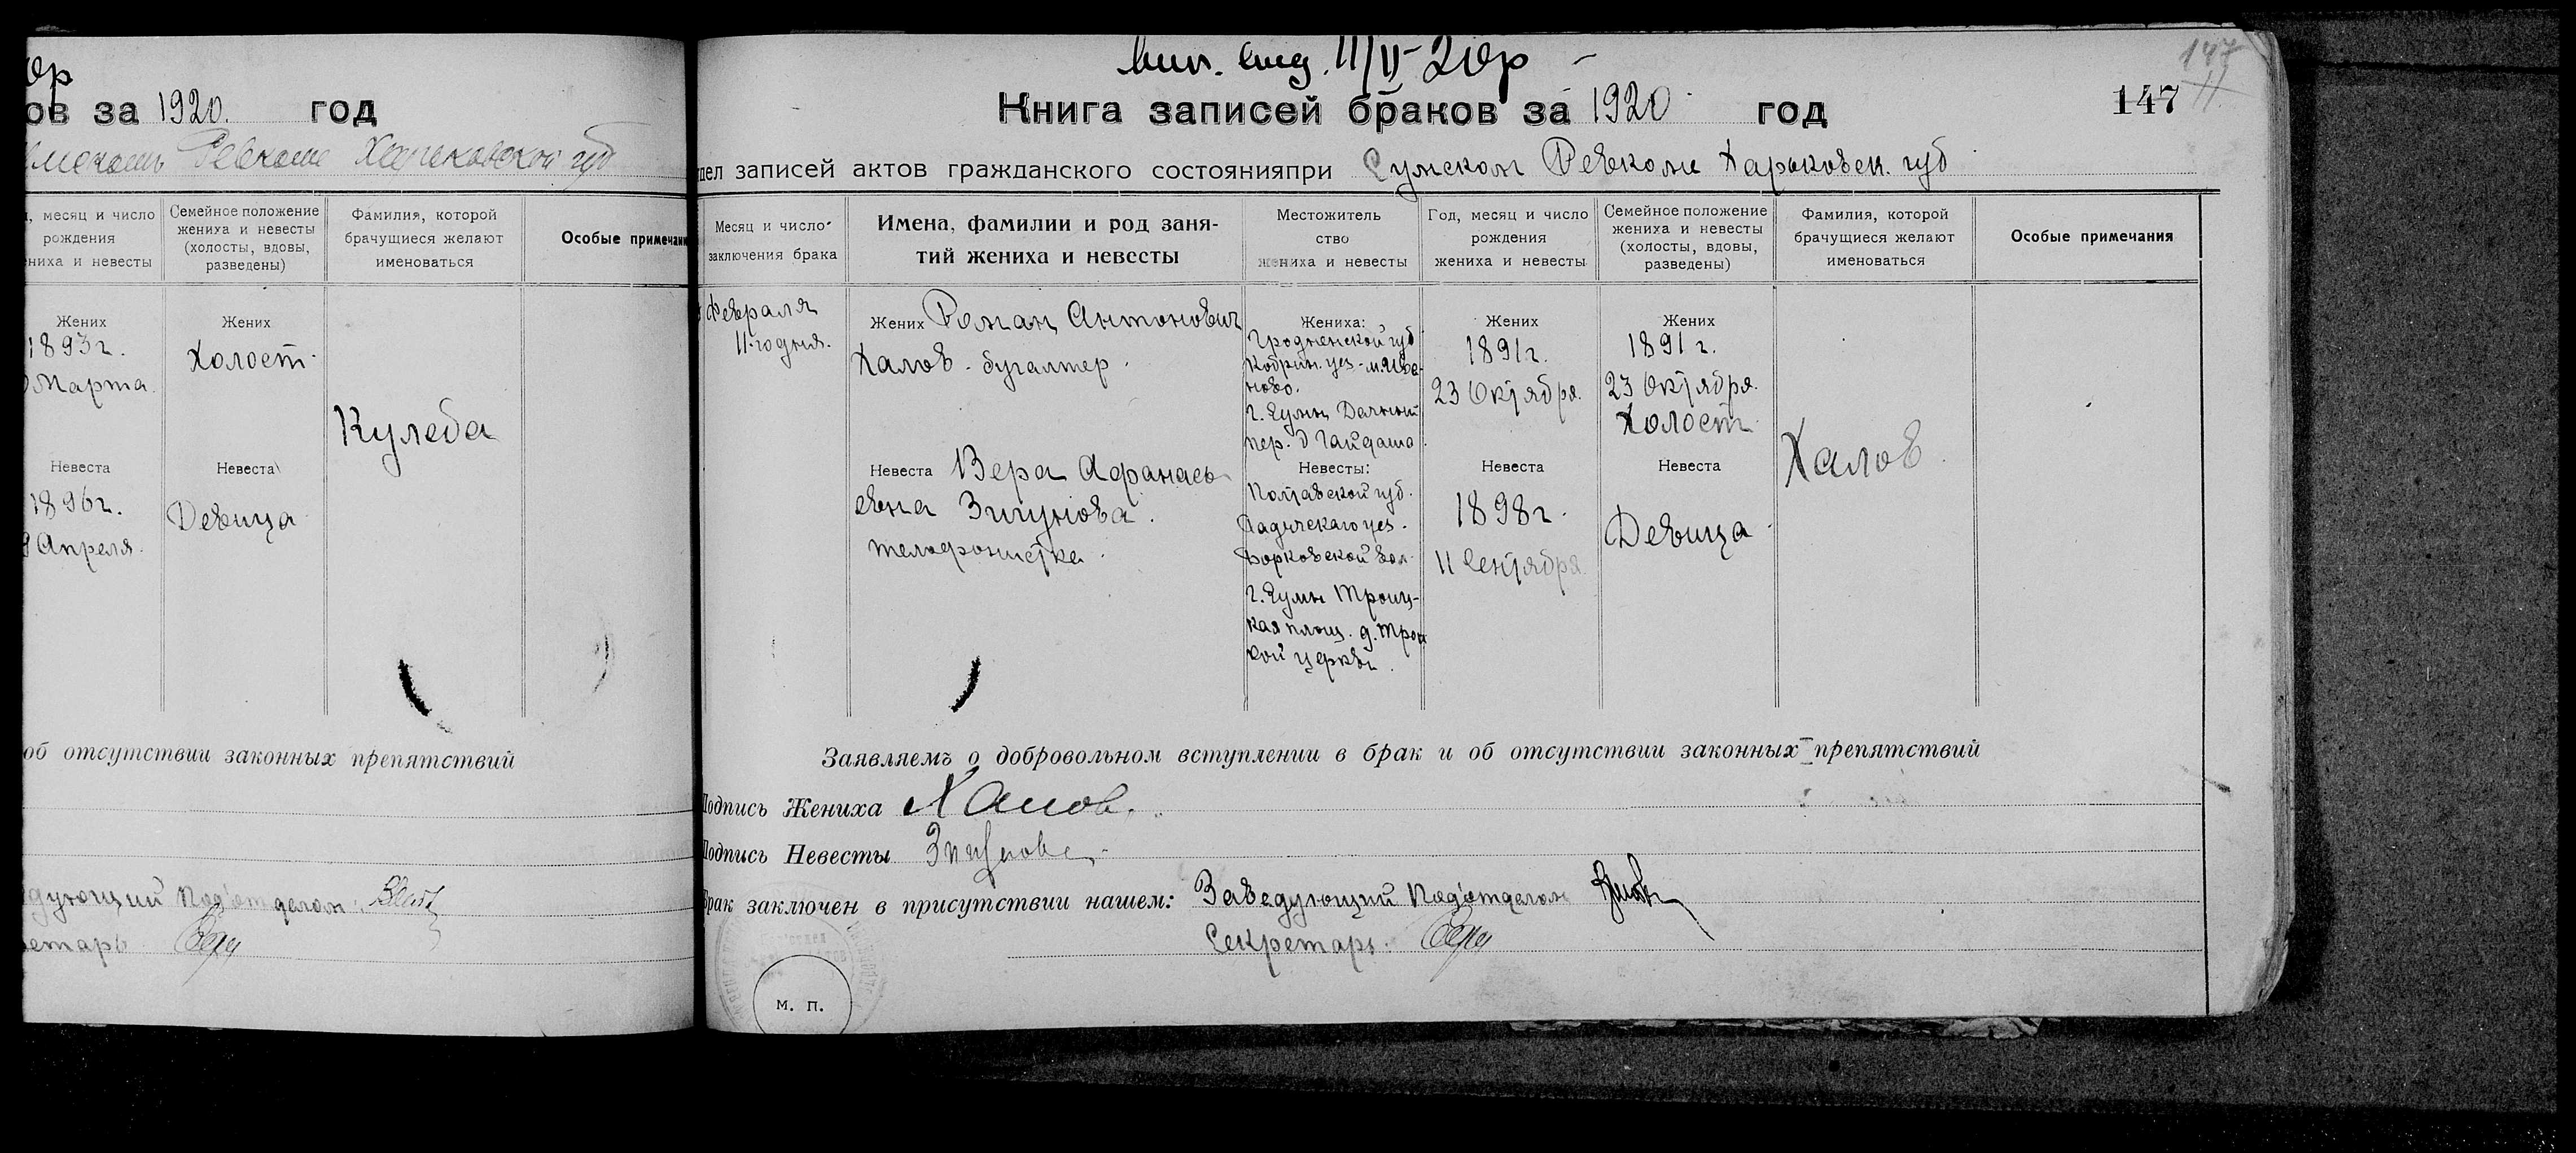 ор
ов за 1920. год
Ревкоме Харьковской губ
, месяц и число
рождения
ниха и невесты
Семейное положение
жениха и невесты
(холосты, вдовы,
разведены)
Фамилия, которой
брачущиеся желают
именоваться
Особые примечани
Жених
1893г.
Марта.
Жених
Холост.
Кулеба
Невеста
1896г.
9 Апреля.
Невеста
Девица
об отсутствии законных препятствий
дующий Под'отделом
ретарь
11/II-20р
147
Книга записей браков за 1920 год
147
дел записей актов гражданского состоянияпри Сумском Ревкоме Харьковск. губ
Месяц и число
заключения брака
Имена, фамилии и род заня-
тий жениха и невесты
Местожитель
ство
жениха и невесты
Год, месяц и число
рождения
жениха и невесты
Семейное положение
жениха и невесты
(холосты, вдовы,
разведены)
Фамилия, которой
брачущиеся желают
именоваться
Особые примечания
Февраля
11-го дня.
Жених Роман Антонович
Халов - бугалтер.
Жениха:
Гродненской губ
Кобрин. уез - м. Ива-
ново.
г. Сумы Дачный
пер. д Гайдаша
Жених
1891г.
23 Октября.
Жених
1891 г.
23 Октября.
Холост
Халов
Невеста Вера Афанась
евна Зигунова.
телефонистка.
Невесты:
Полтавской губ.
Гадячскаго уез.
Борковской вол.
г. Сумы Троиц-
кая площ. д. Трои
кой церкви.
Невеста
1898г.
11 Сентября
Невеста
Девица
Заявляемъ о добровольном вступлении в брак и об отсутствии законных препятствий
Подпись Жениха Халов.
Подпись Невесты Зигунова
Брак заключен в присутствии нашем: Заведующий Под'отделом
Секретарь.
м. п.